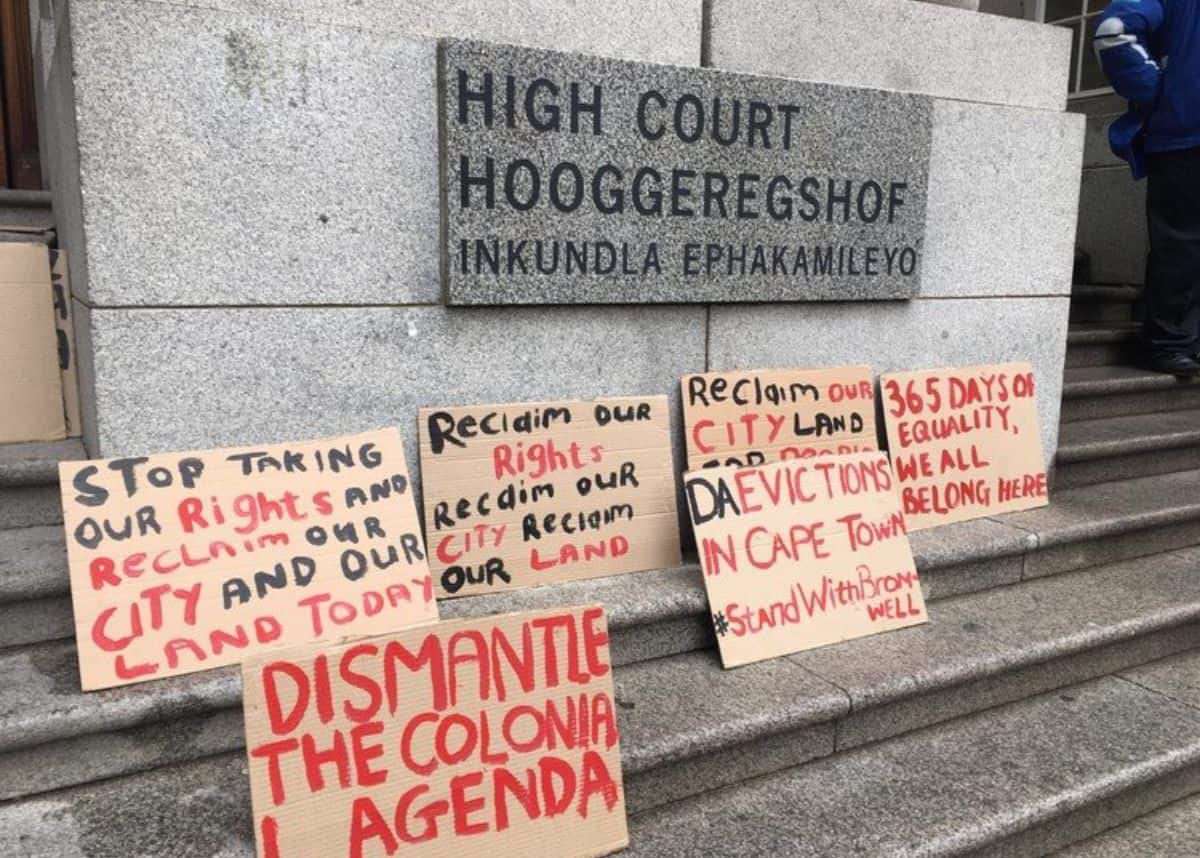 HIGH COURT
HOOGGEREGSHOF
INKUNDLA EPHAKAMILEYO
STOP TAKING
OUR Rights AND
RECLAIM OUR
CITY AND OUR
LAND TODAY
RECLAIM OUR
Rights
Reclaim OUR
CITY Reclaim
OUR LAND
Reclaim OUR
CITY LAND
FOR PEOPLE
365 DAYS OF
EQUALITY,
WE ALL
BELONG HERE
DA EVICTIONS
IN CAPE TOWN
#StandWithBrom-
WELL
DISMANTLE
THE COLONIA
L AGENDA